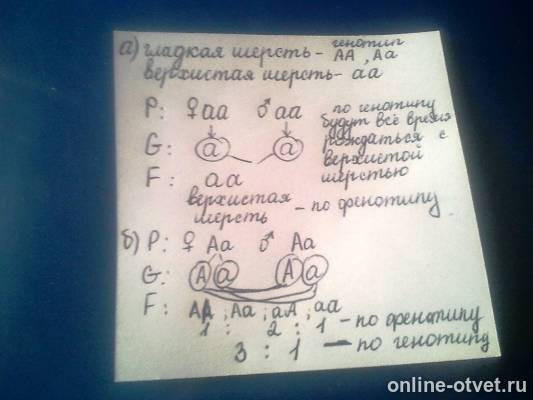 а) гладкая шерсть - генотип АА, Аа
верхистая шерсть - аа
P: ♀ аа ♂ аа
G: а а
F: аа
верхистая
шерсть - по френотипу
по генотипу
будут всё время
рождаться с
верхистой
шерстью
б) P: ♀ Аа ♂ Аа
G: А а А а
F: АА, Аа, аА, аа
1 : 2 : 1 - по френотипу
3 : 1 - по генотипу
online-otvet.ru